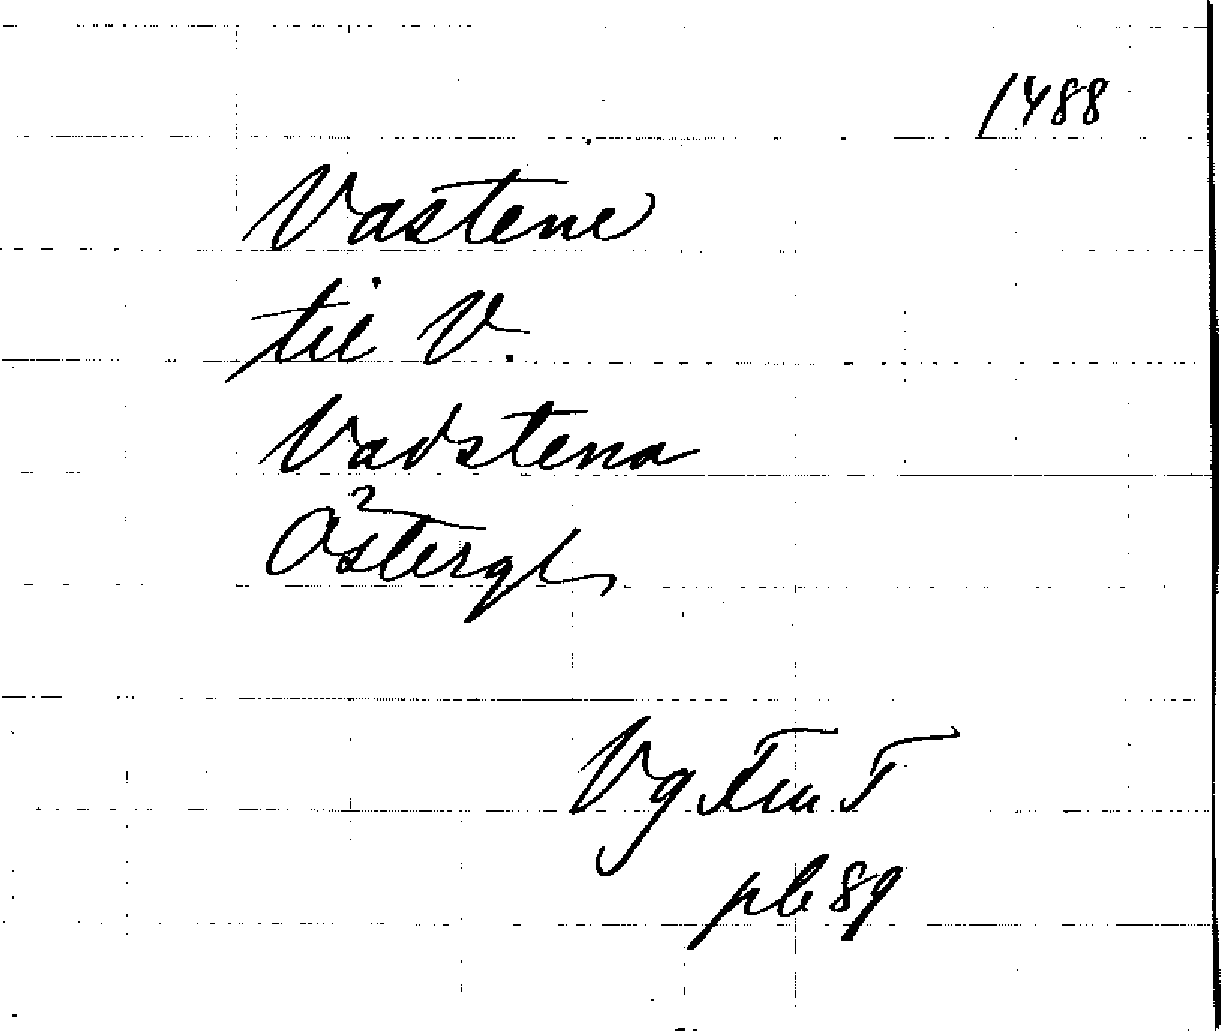 1488
Vastene
til V.
Vadstena
Östergl
Vg Fm T
pb 89